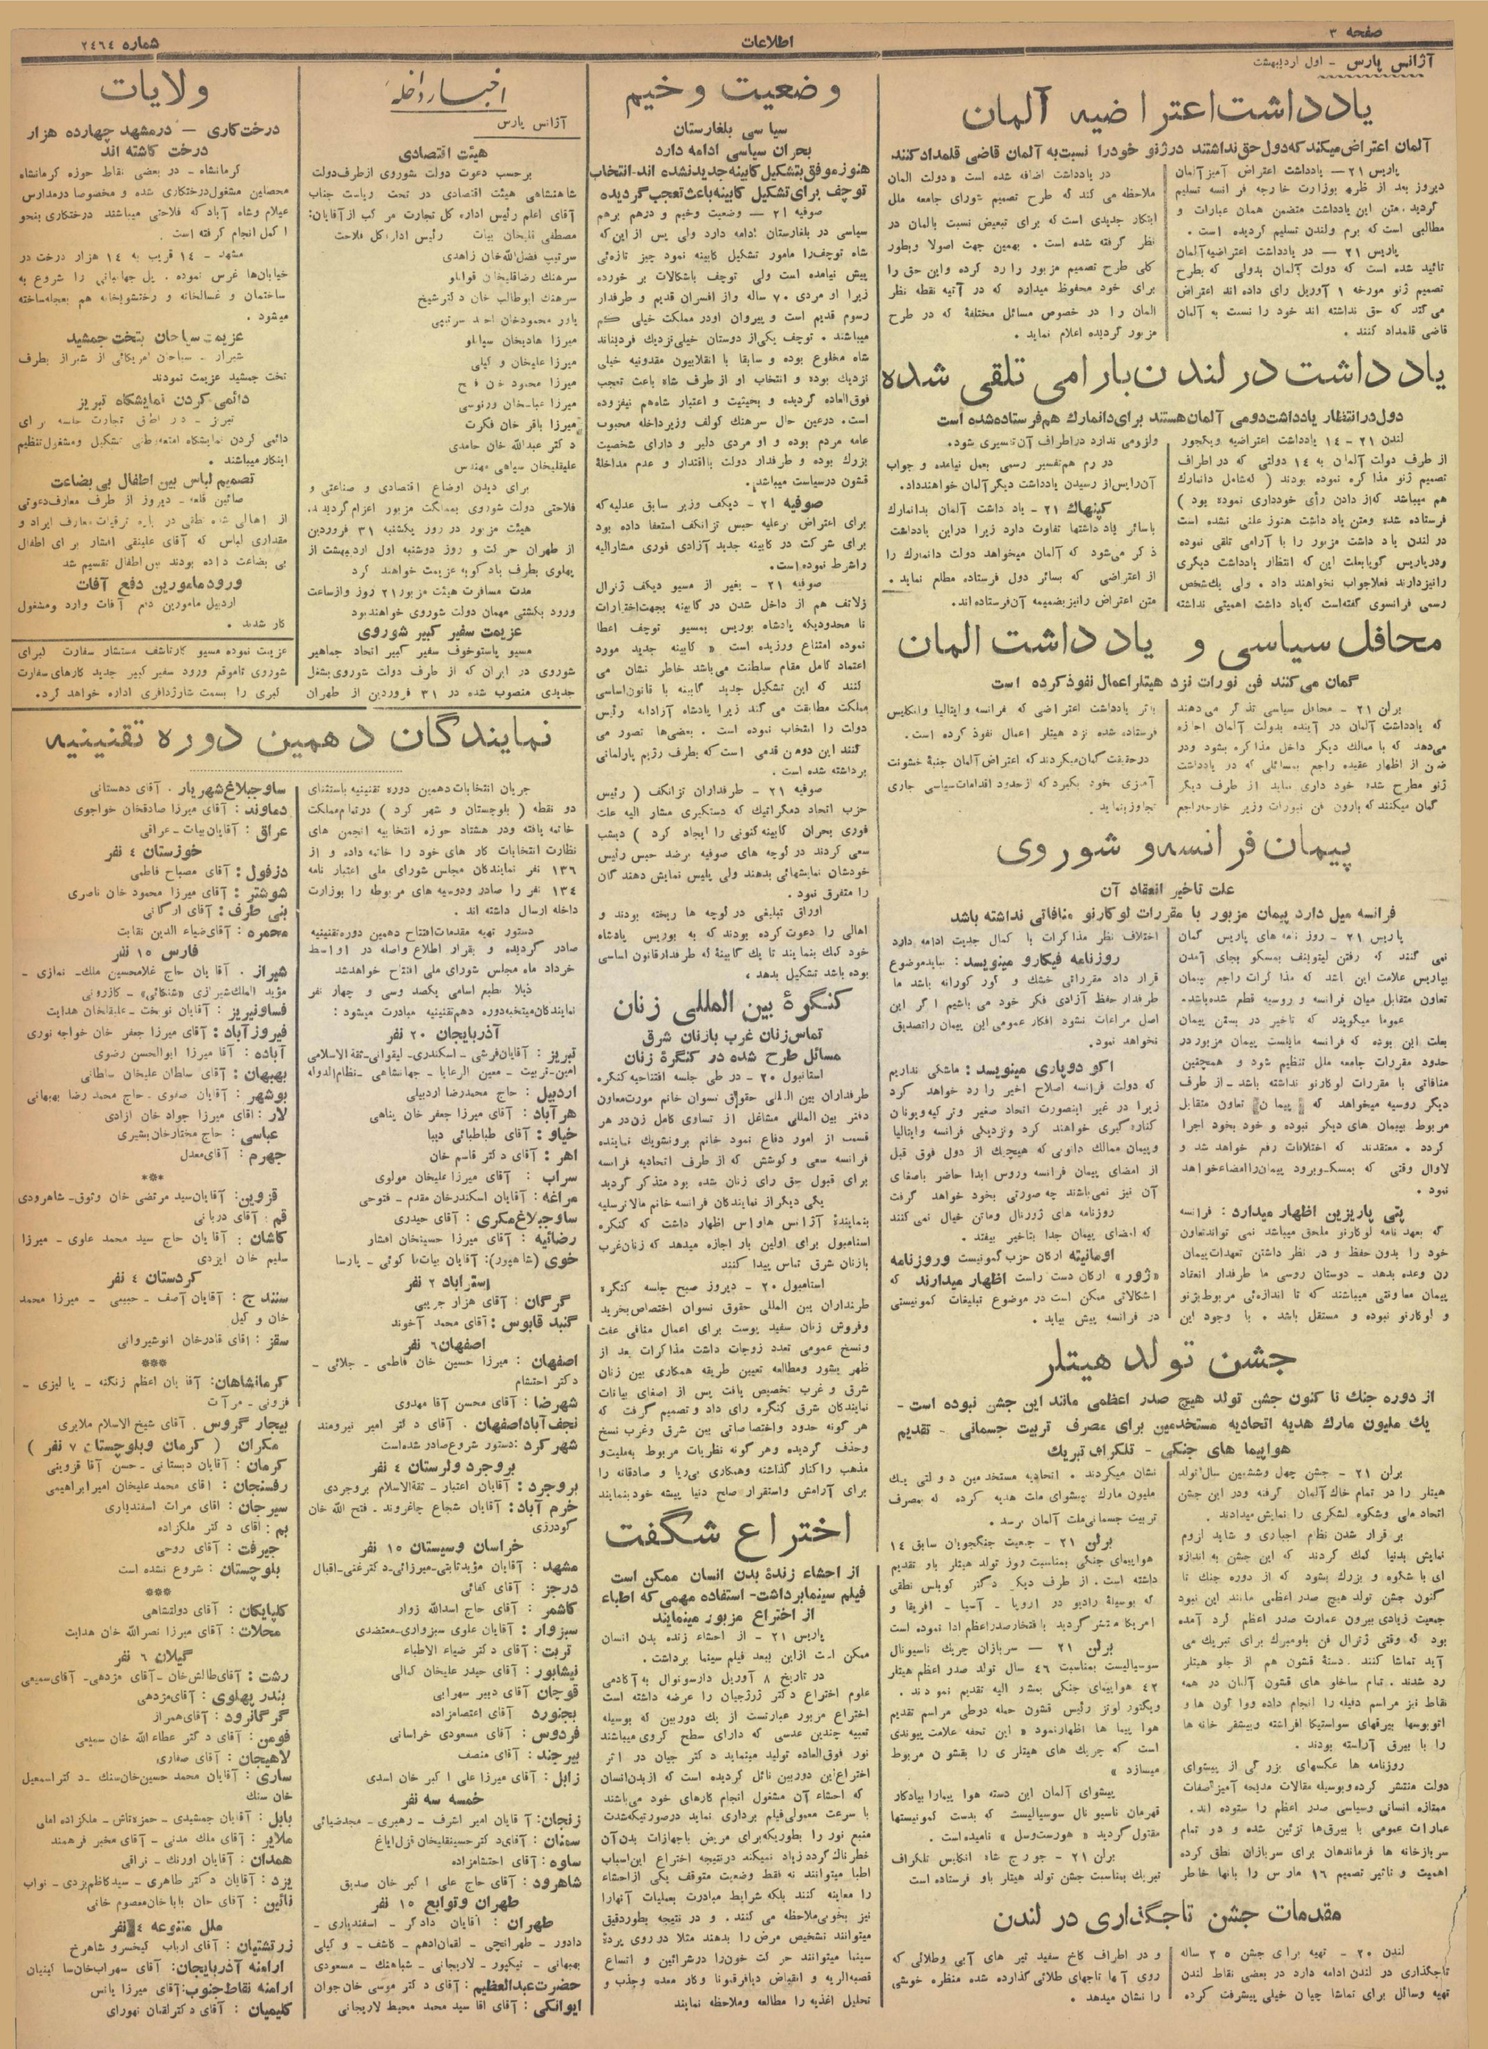 صفحه ۳
اطلاعات
شماره ۲۴۶۴
آژانس پارس - اول اردیبهشت
یادداشت اعتراضیه آلمان
آلمان اعتراض میکند که دول حق نداشتند در ژنو خود را نسبت به آلمان قاضی قلمداد کنند
پاریس ۲۱ - یادداشت اعتراض آمیز آلمان
دیروز بعد از ظهر بوزارت خارجه فرانسه تسلیم
گردید. متن این یادداشت متضمن همان عبارات و
مطالبی است که برم ولندن تسلیم گردیده است .
پاریس ۲۱ - در یادداشت اعتراضیه آلمان
تائید شده است که دولت آلمان بدولی که بطرح
تصمیم ژنو مورخه ۱ آوریل رای داده اند اعتراض
می کند که حق نداشته اند خود را نسبت به آلمان
قاضی قلمداد کنند .
در یادداشت اضافه شده است « دولت المان
ملاحظه می کند که طرح تصمیم شورای جامعه ملل
ابتکار جدیدی است که برای تبعیض نسبت بالمان در
نظر گرفته شده است . بهمین جهت اصولا وبطور
کلی طرح تصمیم مزبور را رد کرده و این حق را
برای خود محفوظ میدارد که در آتیه نقطه نظر
المان را در خصوص مسائل مختلفهٔ که در طرح
مزبور گردیده اعلام نماید .
یادداشت در لندن بارامی تلقی شده
دول در انتظار یادداشت دومی آلمان هستند برای دانمارك هم فرستاده شده است
لندن ۲۱ - ۱۴ یادداشت اعتراضیه
از طرف دولت آلمان به ۱۴ دولتی که در اطراف
تصمیم ژنو مذاکره نموده بودند ( که شامل دانمارك
هم میباشد که از دادن رأی خودداری نموده بود )
فرستاده شده ومتن یادداشت هنوز علنی نشده است
در لندن یادداشت مزبور را با آرامی تلقی نموده
رسمی فرانسوی گفته است که یادداشت اهمیتی نداشته
ولزومی ندارد در اطراف آن تفسیری شود.
در رم هم تفسیر رسمی بعمل نیامده و جواب
آن را پس از رسیدن یادداشت دیگر آلمان خواهند داد.
کپنهاك ۲۱ - یادداشت آلمان بدانمارك
باسائر یادداشتها تفاوت دارد زیرا در این یادداشت
ذکر می شود که آلمان میخواهد دولت دانمارك را
از اعتراضی که بسائر دول فرستاده مطلع نماید .
متن اعتراض را نیز بضمیمه آن فرستاده اند.
محافل سیاسی و یادداشت المان
گمان می کنند فن نورات نزد هیتلر اعمال نفوذ کرده است
برلن ۲۱ - محافل سیاسی تذکر می دهند
که یادداشت آلمان در آینده بدولت آلمان اجازه
می دهد که با ممالك دیگر داخل مذاکره بشود
ژنو مطرح شده خود داری نماید از طرف دیگر
فرستاده شده نزد هیتلر اعمال نفوذ کرده است .
در حقیقت گمان میکردند که اعتراض آلمان جنبهٔ خشونت
آمیزی خود بگیرد که از حدود اقدامات سیاسی جاری
تجاوز بنماید .
پیمان فرانسه و شوروی
علت تاخیر انعقاد آن
فرانسه میل دارد پیمان مزبور با مقررات لوکارنو منافاتی نداشته باشد
پاریس ۲۱ - روزنامه های پاریس گمان
نمی کنند که رفتن لیتوینف بمسکو بجای آمدن
بپاریس علامت این باشد که مذاکرات راجع بپیمان
تعاون متقابل میان فرانسه و روسیه قطع شده باشد.
عموما میگویند که تاخیر در بستن پیمان
بعلت این بوده که فرانسه مایلست پیمان مزبور در
حدود مقررات جامعه ملل تنظیم شود و همچنین
منافاتی با مقررات لوکارنو نداشته باشد - از طرف
دیگر روسیه میخواهد که پیمان تعاون متقابل
مربوط بپیمان های دیگر نبوده و خود بخود اجرا
گردد . معتقدند که اختلافات رفع خواهد شد و
لاوال وقتی که بمسکو برود پیمان را امضاء خواهد
نمود .
پتی پاریزین اظهار میدارد : فرانسه
که بعهد نامه لوکارنو ملحق میباشد نمی تواند تعاون
خود را بدون حفظ و در نظر داشتن تعهدات پیمان
رن وعده بدهد - دوستان روسی ما طرفدار انعقاد
پیمان معاونتی میباشند که تا اندازه ئی مربوط بژنو
و لوکارنو نبوده و مستقل باشد . با وجود این
اختلاف نظر مذاکرات با کمال جدیت ادامه دارد
روزنامه فیگارو مینویسد : نباید موضوع
قرار داد مقرراتی خشك و کور کورانه باشد ما
طرفدار حفظ آزادی فکر خود می باشیم اگر این
اصل مراعات نشود افکار عمومی این پیمان را تصدیق
نخواهد نمود.
اکو دوپاری مینویسد : ماشکی نداریم
که دولت فرانسه اصلاح اخیر را رد خواهد کرد
زیرا در غیر اینصورت اتحاد صغیر وترکیه ویونان
کناره گیری خواهند کرد ونزدیکی فرانسه وایتالیا
وپیمان ممالك دانوبی که هیچیك از دول فوق قبل
از امضای پیمان فرانسه وروس ابدا حاضر بامضای
آن نیز نمی باشند چه صورتی بخود خواهد گرفت
روزنامه های ژورنال وماتن خیال نمی کنند
که امضای پیمان جدا بتاخیر بیفتد .
اومانیته ارکان حزب کمونیست وروزنامه
«ژور» ارکان دست راست اظهار میدارند که
اشکالاتی ممکن است در موضوع تبلیغات کمونیستی
در فرانسه پیش بیاید .
جشن تولد هیتلر
از دوره جنك تا کنون جشن تولد هیچ صدر اعظمی مانند این جشن نبوده است -
یك ملیون مارك هدیه اتحادیه مستخدمین برای مصرف تربیت جسمانی - تقدیم
هواپیما های جنگی - تلگراف تبریك
برلن ۲۱ - جشن چهل وششمین سال تولد
هیتلر را در تمام خاك آلمان گرفته ودر این جشن
اتحاد ملی وشکوه لشگری را نمایش میدادند.
بر قرار شدن نظام اجباری و شاید لزوم
نمایش بدنیا کمك کردند که این جشن به اندازه
ای با شکوه و بزرك بشود که از دوره جنك تا
کنون جشن تولد هیچ صدر اعظمی مانند این نبود
جمعیت زیادی بیرون عمارت صدر اعظم گرد آمده
بود که وقتی ژنرال فن بلومبرك برای تبریك می
آید تماشا کنند . دستهٔ قشون هم از جلو هیتلر
رد شدند . تمام ساخلو های قشون آلمان در همه
نقاط نیز مراسم دفیله را انجام داده وواگون ها و
اتوبوسها بیرقهای سواستیکا افراشته وبیشتر خانه ها
را با بیرق آراسته بودند .
روزنامه ها عکسهای بزرگی از پیشوای
دولت منتشر کرده وبوسیله مقالات مدیحه آمیز صفات
ممتازه انسانی وسیاسی صدر اعظم را ستوده اند.
عمارات عمومی با بیرق‌ها تزئین شده و در تمام
سربازخانه ها فرماندهان برای سربازان نطق کرده
اهمیت و تاثیر تصمیم ۱۶ مارس را بانها خاطر
نشان میکردند . اتحادیه مستخدمین دولتی یك
ملیون مارك بپیشوای ملت هدیه کرده که بمصرف
تربیت جسمانی ملت آلمان برسد .
برلن ۲۱ - جمعیت جنگجویان سابق ۱۴
هواپیمای جنگی بمناسبت روز تولد هیتلر باو تقدیم
داشته است . از طرف دیگر دکتر گوبلس نطقی
که بوسیلهٔ رادیو در اروپا - آسیا - افریقا و
امریکا منتشر گردید بافتخار صدر اعظم ادا نموده است
برلن ۲۱ - سربازان چریك ناسیونال
سوسیالیست بمناسبت ۴۶ سال تولد صدر اعظم هیتلر
۴۲ هواپیمای جنگی بمشار الیه تقدیم نمودند .
ویکتور لوتز رئیس قشون حمله در طی مراسم تقدیم
هوا پیما ها اظهار نمود « این تحفه علامت پیوندی
است که چریك های هیتلری را بقشون مربوط
میسازد »
پیشوای آلمان این دسته هوا پیما را بیادگار
قهرمان ناسیونال سوسیالیست که بدست کمونیستها
مقتول گردید « هورست وسل » نامیده است .
برلن ۲۱ - جورج شاه انگلیس تلگراف
تبریك بمناسبت جشن تولد هیتلر باو فرستاده است
مقدمات جشن تاجگذاری در لندن
لندن ۲۰ - تهیه برای جشن ۲۵ ساله
تاجگذاری در لندن ادامه دارد در بعضی نقاط لندن
تهیه وسائل برای تماشا چیان خیلی پیشرفت کرده
و در اطراف کاخ سفید تیر های آبی وطلائی که
روی آنها تاجهای طلائی گذارده شده منظره خوشی
را نشان میدهد .
وضعیت وخیم
سیاسی بلغارستان
بحران سیاسی ادامه دارد
هنوز موفق بتشکیل کابینه جدید نشده اند - انتخاب
توچف برای تشکیل کابینه باعث تعجب گردیده
صوفیه ۲۱ - وضعیت وخیم و درهم برهم
سیاسی در بلغارستان ادامه دارد ولی پس از این که
شاه توچف را مامور تشکیل کابینه نمود چیز تازه ئی
پیش نیامده است ولی توچف باشکالات بر خورده
زیرا او مردی ۷۰ ساله واز افسران قدیم و طرفدار
رسوم قدیم است و پیروان او در مملکت خیلی کم
میباشند . توچف یکی از دوستان خیلی نزدیك فردیناند
شاه مخلوع بوده و سابقا با انقلابیون مقدونیه خیلی
نزدیك بوده و انتخاب او از طرف شاه باعث تعجب
فوق العاده گردیده و بحیثیت و اعتبار شاه هم نیفزوده
است. در عین حال سرهنك کولف وزیر داخله محبوب
عامه مردم بوده و او مردی دلیر و دارای شخصیت
بزرك بوده و طرفدار دولت بااقتدار و عدم مداخلهٔ
قشون در سیاست میباشد.
صوفیه ۲۱ - دیکف وزیر سابق عدلیه که
برای اعتراض برعلیه حبس تزانکف استعفا داده بود
برای شرکت در کابینه جدید آزادی فوری مشارالیه
را شرط نموده است.
صوفیه ۲۱ - بغیر از مسیو دیکف ژنرال
زلاتف هم از داخل شدن در کابینه بجهت اختیارات
نا محدودیکه پادشاه بوریس بمسیو توچف اعطا
نموده امتناع ورزیده است « کابینه جدید مورد
اعتماد کامل مقام سلطنت می باشد خاطر نشان می
کنند که این تشکیل جدید کابینه با قانون اساسی
مملکت مطابقت می کند زیرا پادشاه آزادانه رئیس
دولت را انتخاب نموده است . بعضی‌ها تصور می
کنند این دومین قدمی است که بطرف رژیم پارلمانی
برداشته شده است .
صوفیه ۲۱ - طرفداران تزانکف ( رئیس
حزب اتحاد دمکراتیك که دستگیری مشار الیه علت
فوری بحران کابینه کنونی را ایجاد کرد ) دیشب
سعی کردند در کوچه های صوفیه برضد حبس رئیس
خودشان نمایشهائی بدهند ولی پلیس نمایش دهندگان
را متفرق نمود.
اوراق تبلیغی در کوچه ها ریخته بودند و
اهالی را دعوت کرده بودند که به بوریس پادشاه
خود کمك بنمایند تا یك کابینهٔ که طرفدار قانون اساسی
بوده باشد تشکیل بدهد .
کنگرهٔ بین المللی زنان
تماس زنان غرب بازنان شرق
مسائل طرح شده در کنگرهٔ زنان
استانبول ۲۰ - در طی جلسه افتتاحیه کنگره
طرفداران بین المللی حقوق نسوان خانم مورت معاون
دفتر بین المللی مشاغل از تساوی کامل زن در هر
قسمت از امور دفاع نمود خانم برونشویك نماینده
فرانسه سعی و کوشش که از طرف اتحادیه فرانسه
برای قبول حق رای زنان شده بود متذکر گردید
یکی دیگر از نمایندگان فرانسه خانم مالاترسلیه
بنمایندهٔ آژانس هاواس اظهار داشت که کنگره
استامبول برای اولین بار اجازه میدهد که زنان غرب
بازنان شرق تماس پیدا کنند
استامبول ۲۰ - دیروز صبح جلسه کنگره
طرفداران بین المللی حقوق نسوان اختصاص بخرید
وفروش زنان سفید پوست برای اعمال منافی عفت
ونسخ عمومی تعدد زوجات داشت مذاکرات بعد از
ظهر بشور ومطالعه تعیین طریقه همکاری بین زنان
شرق و غرب تخصیص یافت پس از اصغای بیانات
نمایندگان شرق کنگره رای داد و تصمیم گرفت که
هر گونه حدود واختصاصاتی بین شرق وغرب نسخ
وحذف گردیده وهر گونه نظریات مربوط بملیت و
مذهب را کنار گذاشته وهمکاری بی ریا و صادقانه را
برای آرامش واستقرار صلح دنیا پیشه خود بنمایند
اختراع شگفت
از احشاء زندهٔ بدن انسان ممکن است
فیلم سینما برداشت - استفاده مهمی که اطباء
از اختراع مزبور مینمایند
پاریس ۲۱ - از احشاء زنده بدن انسان
ممکن است از این ببعد فیلم سینما برداشت .
در تاریخ ۸ آوریل دارسونوال به آکادمی
علوم اختراع دکتر ژرژجیان را عرضه داشته است
اختراع مزبور عبارتست از یك دوربین که بوسیله
تعبیه چندین عدسی که دارای سطح کروی میباشند
نور فوق العاده تولید مینماید دکتر جیان در اثر
اختراع این دوربین نائل گردیده است که از بدن انسان
که احشاء آن مشغول انجام کارهای خود می باشند
با سرعت معمولی فیلم برداری نماید در صورتیکه شدت
منبع نور را بطوریکه برای مریض باجهازات بدن آن
خطرناك گردد زیاد نمیکند در نتیجه اختراع این اسباب
اطبا میتوانند نه فقط وضعیت متوقف یکی از احشاء
را معاینه کنند بلکه شرایط مبادرت بعملیات آنها را
نیز بخوبی ملاحظه می کنند. و در نتیجه بطور دقیق
میتوانند تشخیص مرض را بدهند مثلا در روی پردهٔ
سینما میتوانند حرکت خون را در شرائین و اتساع
قصبه الریه و انقباض دیافرقونا وکار معده وجذب و
تحلیل اغذیه را مطالعه وملاحظه نمایند
اخبار داخله
آژانس پارس
هیئت اقتصادی
برحسب دعوت دولت شوروی از طرف دولت
شاهنشاهی هیئت اقتصادی در تحت ریاست جناب
آقای اعلم رئیس اداره کل تجارت مرکب از آقایان:
مصطفی قلیخان بیات رئیس اداره کل فلاحت
سرتیپ فضل الله خان زاهدی
سرهنك رضاقلیخان قوانلو
سرهنك ابوطالب خان دکتر شیخ
یاور محمودخان احمد سرتیپی
میرزا هادیخان سیاتلو
میرزا علیخان وکیلی
میرزا محمود خان فتح
میرزا عباسخان ورنوسی
میرزا باقر خان فکرت
دکتر عبدالله خان حامدی
علیقلیخان سپاهی مهندس
برای دیدن اوضاع اقتصادی و صناعتی و
فلاحتی دولت شوروی بمملکت مزبور اعزام گردیدند.
هیئت مزبور در روز یکشنبه ۳۱ فروردین
از طهران حرکت و روز دوشنبه اول اردیبهشت از
پهلوی بطرف بادکوبه عزیمت خواهند کرد
مدت مسافرت هیئت مزبور ۲۱ روز واز ساعت
ورود بکشتی مهمان دولت شوروی خواهند بود
عزیمت سفیر کبیر شوروی
مسیو پاستوخوف سفیر کبیر اتحاد جماهیر
شوروی در ایران که از طرف دولت شوروی بشغل
جدیدی منصوب شده در ۳۱ فروردین از طهران
عزیمت نموده مسیو کارتاشف مستشار سفارت کبرای
شوروی تا موقع ورود سفیر کبیر جدید کارهای سفارت
کبری را بسمت شارژدافری اداره خواهد کرد.
ولایات
درخت کاری - در مشهد چهارده هزار
درخت کاشته اند
کرمانشاه - در بعضی نقاط حوزه کرمانشاه
محصلین مشغول درختکاری شده و مخصوصا در مدارس
عیلام وشاه آباد که فلاحتی میباشند درختکاری بنحو
اکمل انجام گرفته است .
مشهد - ۱۴ قریب به ۱۴ هزار درخت در
خیابان‌ها غرس نموده. پل جهانبانی را شروع به
ساختمان و غسالخانه و رختشویخانه هم بعجله ساخته
میشود .
عزیمت سیاحان بتخت جمشید
شیراز - سیاحان امریکائی از شیراز بطرف
تخت جمشید عزیمت نمودند
دائمی کردن نمایشگاه تبریز
تبریز - در اطاق تجارت جلسه برای
دائمی کردن نمایشگاه امتعه وطنی تشکیل ومشغول تنظیم
اینکار میباشند .
تصمیم لباس بین اطفال بی بضاعت
صائین قلعه - دیروز از طرف معارف دعوتی
مقداری لباس که آقای علینقی افشار برای اطفال
بی بضاعت داده بودند بین اطفال تقسیم شد
ورود مامورین دفع آفات
اردبیل مامورین دفع آفات وارد ومشغول
کار شدند .
نمایندگان دهمین دوره تقنینیه
جریان انتخابات دهمین دوره تقنینیه باستثنای
دو نقطه ( بلوچستان و شهر کرد ) در تمام مملکت
خاتمه یافته ودر هشتاد حوزه انتخابیه انجمن های
نظارت انتخابات کار های خود را خاتمه داده و از
۱۳۶ نفر نمایندگان مجلس شورای ملی اعتبار نامه
۱۳۴ نفر را صادر ودوسیه های مربوطه را بوزارت
داخله ارسال داشته اند .
دستور تهیه مقدمات افتتاح دهمین دوره تقنینیه
صادر گردیده و بقرار اطلاع واصله در اواسط
خرداد ماه مجلس شورای ملی افتتاح خواهد شد
ذیلا بطبع اسامی یکصد وسی و چهار نفر
نمایندگان منتخبه دوره دهم تقنینیه مبادرت میشود :
آذربایجان ۲۰ نفر
تبریز : آقایان فرشی - اسکندری - لیقوانی - ثقة الاسلامی
امین - تربیت - معین الرعایا - جهانشاهی - نظام الدوله
اردبیل : حاج محمدرضا اردبیلی
هرآباد : آقای میرزا جعفر خان پناهی
خیاو : آقای طباطبائی دیبا
اهر : آقای دکتر قاسم خان
سراب : آقای میرزا علیخان مولوی
مراغه : آقایان اسکندرخان مقدم - فتوحی
ساوجبلاغ مکری : آقای حیدری
رضائیه : آقای میرزا حسینخان افشار
خوی (شاهپور): آقایان بیات ماکوئی - پارسا
استراباد ۲ نفر
گرگان : آقای هزار جریبی
گنبد قابوس : آقای محمد آخوند
اصفهان ۶ نفر
اصفهان : میرزا حسین خان فاطمی - جلائی -
دکتر احتشام
شهرضا : آقای محسن آقا مهدوی
نجف آباد اصفهان . آقای دکتر امیر نیرومند
شهر کرد : دستور شروع صادر شده است
بروجرد ولرستان ۴ نفر
بروجرد : آقایان اعتبار - ثقة الاسلام بروجردی
خرم آباد : آقایان شجاع چاغروند - فتح الله خان
گودرزی
خراسان وسیستان ۱۵ نفر
مشهد : آقایان مؤید ثابتی - میرزائی - دکتر غنی - اقبال
درجز : آقای کفائی
کاشمر : آقای حاج اسدالله زوار
سبزوار : آقایان علوی سبزواری - معتضدی
تربت : آقای دکتر ضیاء الاطباء
نیشابور : آقای حیدر علیخان کمالی
قوچان آقای دبیر سهرابی
بجنورد آقای اعتصام زاده
فردوس : آقای مسعودی خراسانی
بیرجند : آقای منصف
زابل : آقای میرزا علی اکبر خان اسدی
خمسه سه نفر
زنجان: آقایان امیر اشرف - رهبری - مجدضیائی
سمنان : آقای دکتر حسینقلیخان قزل ایاغ
ساوه : آقای احتشام زاده
شاهرود : آقای حاج علی اکبر خان صدیق
طهران وتوابع ۱۵ نفر
طهران : آقایان دادگر - اسفندیاری -
دادور - طهرانچی - لقمان ادهم - کاشف - وکیلی
بهبهانی - نیکپور - لاریجانی - شباهنك - مسعودی
حضرت عبدالعظیم : آقای دکتر موسی خان جوان
ایوانکی : آقای آقا سید محمد محیط لاریجانی
ساوجبلاغ شهریار . آقای دهستانی
دماوند : آقای میرزا صادقخان خواجوی
عراق : آقایان بیات - عراقی
خوزستان ۴ نفر
دزفول : آقای مصباح فاطمی
شوشتر : آقای میرزا محمود خان ناصری
بنی طرف : آقای ارگانی
محمره : آقای ضیاء الدین نقابت
فارس ۱۵ نفر
شیراز . آقایان حاج غلامحسین ملك - نمازی -
مؤید الملك شیرازی - کازرونی
فسا ونیریز : آقایان نوبخت - علیقلیخان هدایت
فیروزآباد : آقای میرزا جعفر خان خواجه نوری
آباده : آقا میرزا ابوالحسن رضوی
بهبهان : آقای سلطان علیخان سلطانی
بوشهر : آقایان صفوی - حاج محمد رضا بهبهانی
لار : آقای میرزا جواد خان ازادی
عباسی : حاج مختار خان بشیری
جهرم : آقای معدل
***
قزوین: آقایان سید مرتضی خان وثوق - شاهرودی
قم : آقای دربانی
کاشان . آقایان حاج سید محمد علوی - میرزا
سلیم خان ایزدی
کردستان ۴ نفر
سنندج : آقایان آصف - حبیبی - میرزا محمد
خان وکیل
سقز : اقای قادر خان انوشیروانی
***
کرمانشاهان: آقایان اعظم زنگنه - پالیزی -
قزونی - مرآت
بیجار گروس . آقای شیخ الاسلام ملایری
مکران ( کرمان وبلوچستان ۷ نفر )
کرمان : آقایان دبستانی - حسن آقا قزوینی
رفسنجان : اقای محمد علیخان امیر ابراهیمی
سیرجان : اقای مرات اسفندیاری
بم : آقای دکتر ملکزاده
جیرفت : آقای روحی
بلوچستان : شروع نشده است
***
گلپایگان : آقای دولتشاهی
محلات : آقای میرزا نصرالله خان هدایت
گیلان ۶ نفر
رشت : آقای طالش خان - آقای مژدهی - آقای سمیعی
بندر پهلوی : آقای مژدهی
گرگانرود : آقای همراز
فومن : آقای دکتر عطاءالله خان سمیعی
لاهیجان : آقای صفاری
ساری : آقایان محمد حسین خان سنك - دکتر اسمعیل
خان سنك
بابل : آقایان جمشیدی - حمزه تاش - ملکزاده املی
ملایر : آقای ملك مدنی - آقای مخبر فرهمند
همدان : آقایان اورنك - نراقی
یزد : آقایان دکتر طاهری - سید کاظم یزدی - نواب
نائین : آقای حان باباخان معصوم خانی
ملل متنوعه ۴ نفر
زرتشتیان : آقای ارباب کیخسرو شاهرخ
ارامنه آذربایجان: آقای سهراب خان ساگینیان
ارامنه نقاط جنوب: آقای میرزا یانس
کلیمیان : آقای دکتر لقمان نهورای